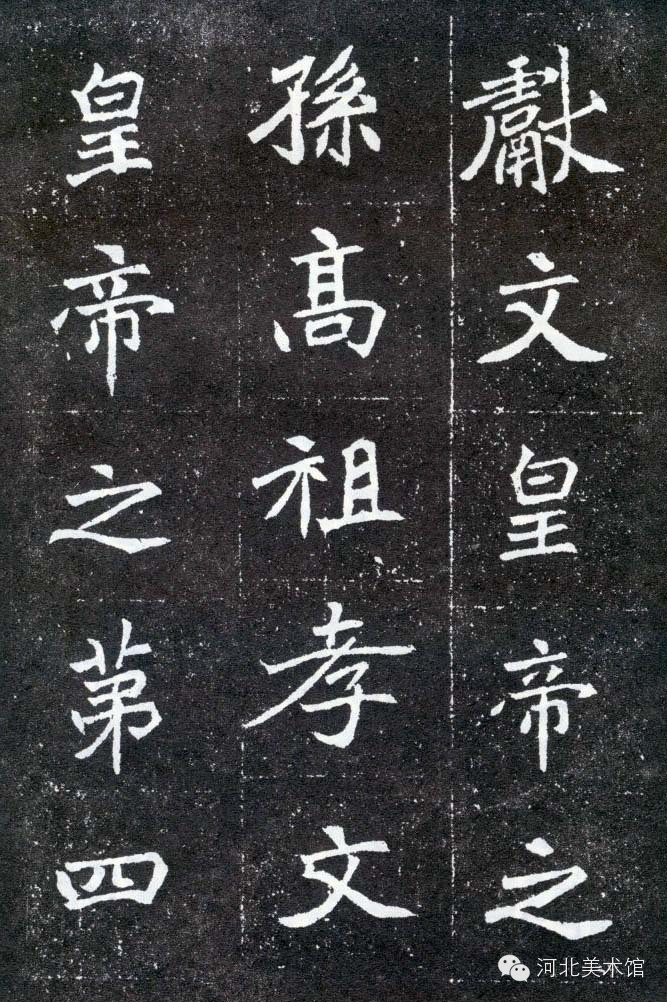 獻文皇帝之
孫高祖孝文
皇帝之第四
河北美术馆